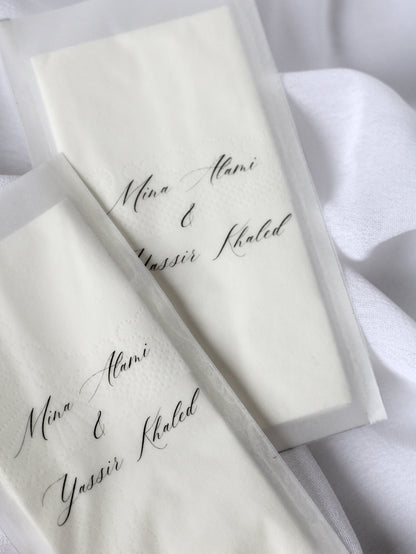 Mina Alami
&
Yassir Khaled
Mina Alami
&
Yassir Khaled